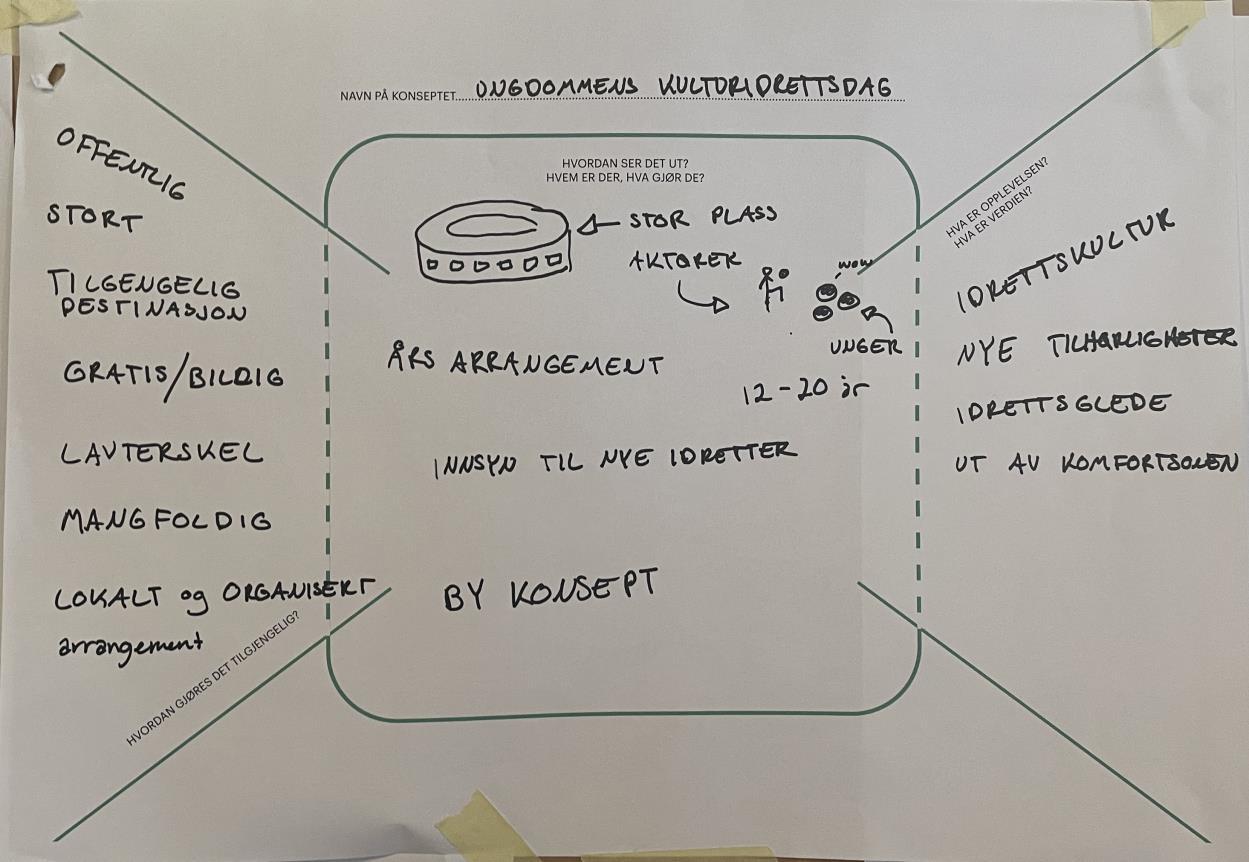 NAVN PÅ KONSEPTET UNGDOMMENS KULTURIDRETTSDAG
OFFENTLIG
STORT
TILGENGELIG
DESTINASJON
GRATIS/BILDIG
LAVTERSKEL
MANGFOLDIG
LOKALT og ORGANISERT
arrangement
HVORDAN GJØRES DET TILGJENGELIG?
HVORDAN SER DET UT?
HVEM ER DER, HVA GJØR DE?
STOR PLASS
AKTØRER
wow
UNGER
12-20 år
ÅRS ARRANGEMENT
INNSYN TIL NYE IDRETTER
BY KONSEPT
HVA ER OPPLEVELSEN?
HVA ER VERDIEN?
IDRETTSKULTUR
NYE TILHØRLIGHETER
IDRETTSGLEDE
UT AV KOMFORTSOLEN